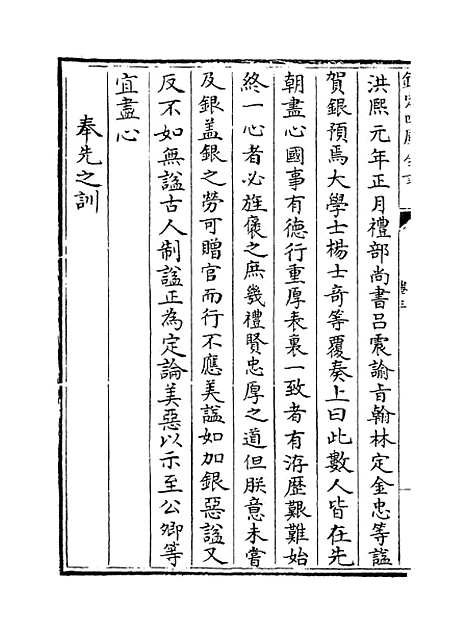 欽定四庫全書
卷三
洪熙元年正月禮部尚書吕震諭㫖翰林定金忠等諡
賀銀預焉大學士楊士竒等覆奏上曰此數人皆在先
朝盡心國事有德行重厚表裏一致者有洊歴艱難始
終一心者必旌襃之庶幾禮賢忠厚之道但朕意未嘗
及銀盖銀之勞可贈官而行不應美諡如加銀惡諡又
反不如無諡古人制諡正為定論美惡以示至公卿等
宜盡心
奉先之訓